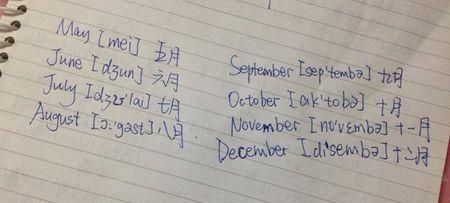 May [mei] 五月
June [dʒun] 六月
July [dʒʊ'lai] 七月
August [ɔ:'gəst] 八月
September [sep'tembə] 九月
October [ak'tobə] 十月
November [no'vɛmbə] 十一月
December [di'sembə] 十二月